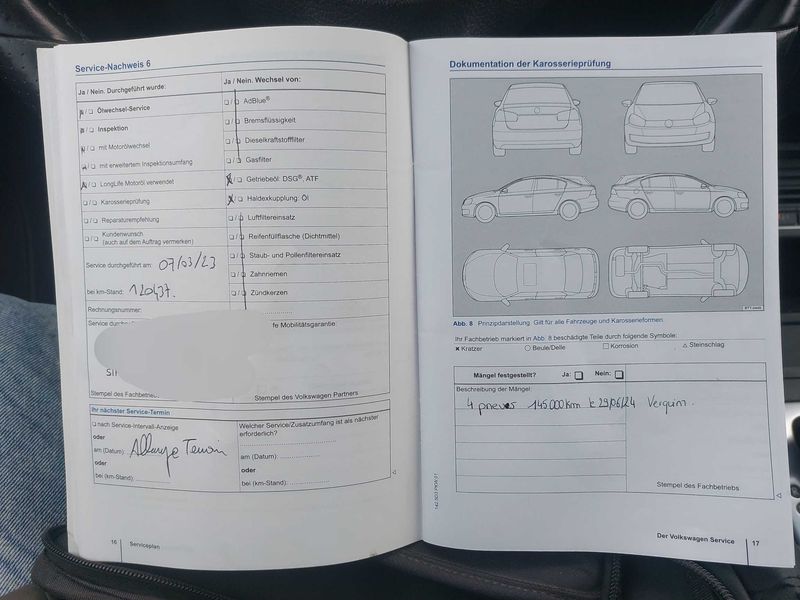 Service-Nachweis 6
Ja / Nein. Durchgeführt wurde:
Ölwechsel-Service
Inspektion
mit Motorölwechsel
mit erweitertem Inspektionsumfang
LongLife Motoröl verwendet
Karosserieprüfung
Reparaturempfehlung
Kundenwunsch
(auch auf dem Auftrag vermerken)
Service durchgeführt am: 07/03/23
bei km-Stand: 120437.
Rechnungsnummer:
Service durch
Stempel des Fachbetrieb
Ja / Nein. Wechsel von:
AdBlue®
Bremsflüssigkeit
Dieselkraftstofffilter
Gasfilter
Getriebeöl: DSG®, ATF
Haldexkupplung: Öl
Luftfiltereinsatz
Reifenfüllflasche (Dichtmittel)
Staub- und Pollenfiltereinsatz
Zahnriemen
Zündkerzen
fe Mobilitätsgarantie:
Stempel des Volkswagen Partners
Ihr nächster Service-Termin
nach Service-Intervall-Anzeige
oder
am (Datum):
oder
bei (km-Stand):
Welcher Service/Zusatzumfang ist als nächster
erforderlich?
am (Datum):
oder
bei (km-Stand):
16 Serviceplan
Dokumentation der Karosserieprüfung
Abb. 8 Prinzipdarstellung. Gilt für alle Fahrzeuge und Karosserieformen.
Ihr Fachbetrieb markiert in Abb. 8 beschädigte Teile durch folgende Symbole:
Kratzer
Beule/Delle
Korrosion
Steinschlag
Mängel festgestellt? Ja: Nein:
Beschreibung der Mängel:
4 pneus 145.000 km le 29/06/24
Stempel des Fachbetriebs
Der Volkswagen Service 17